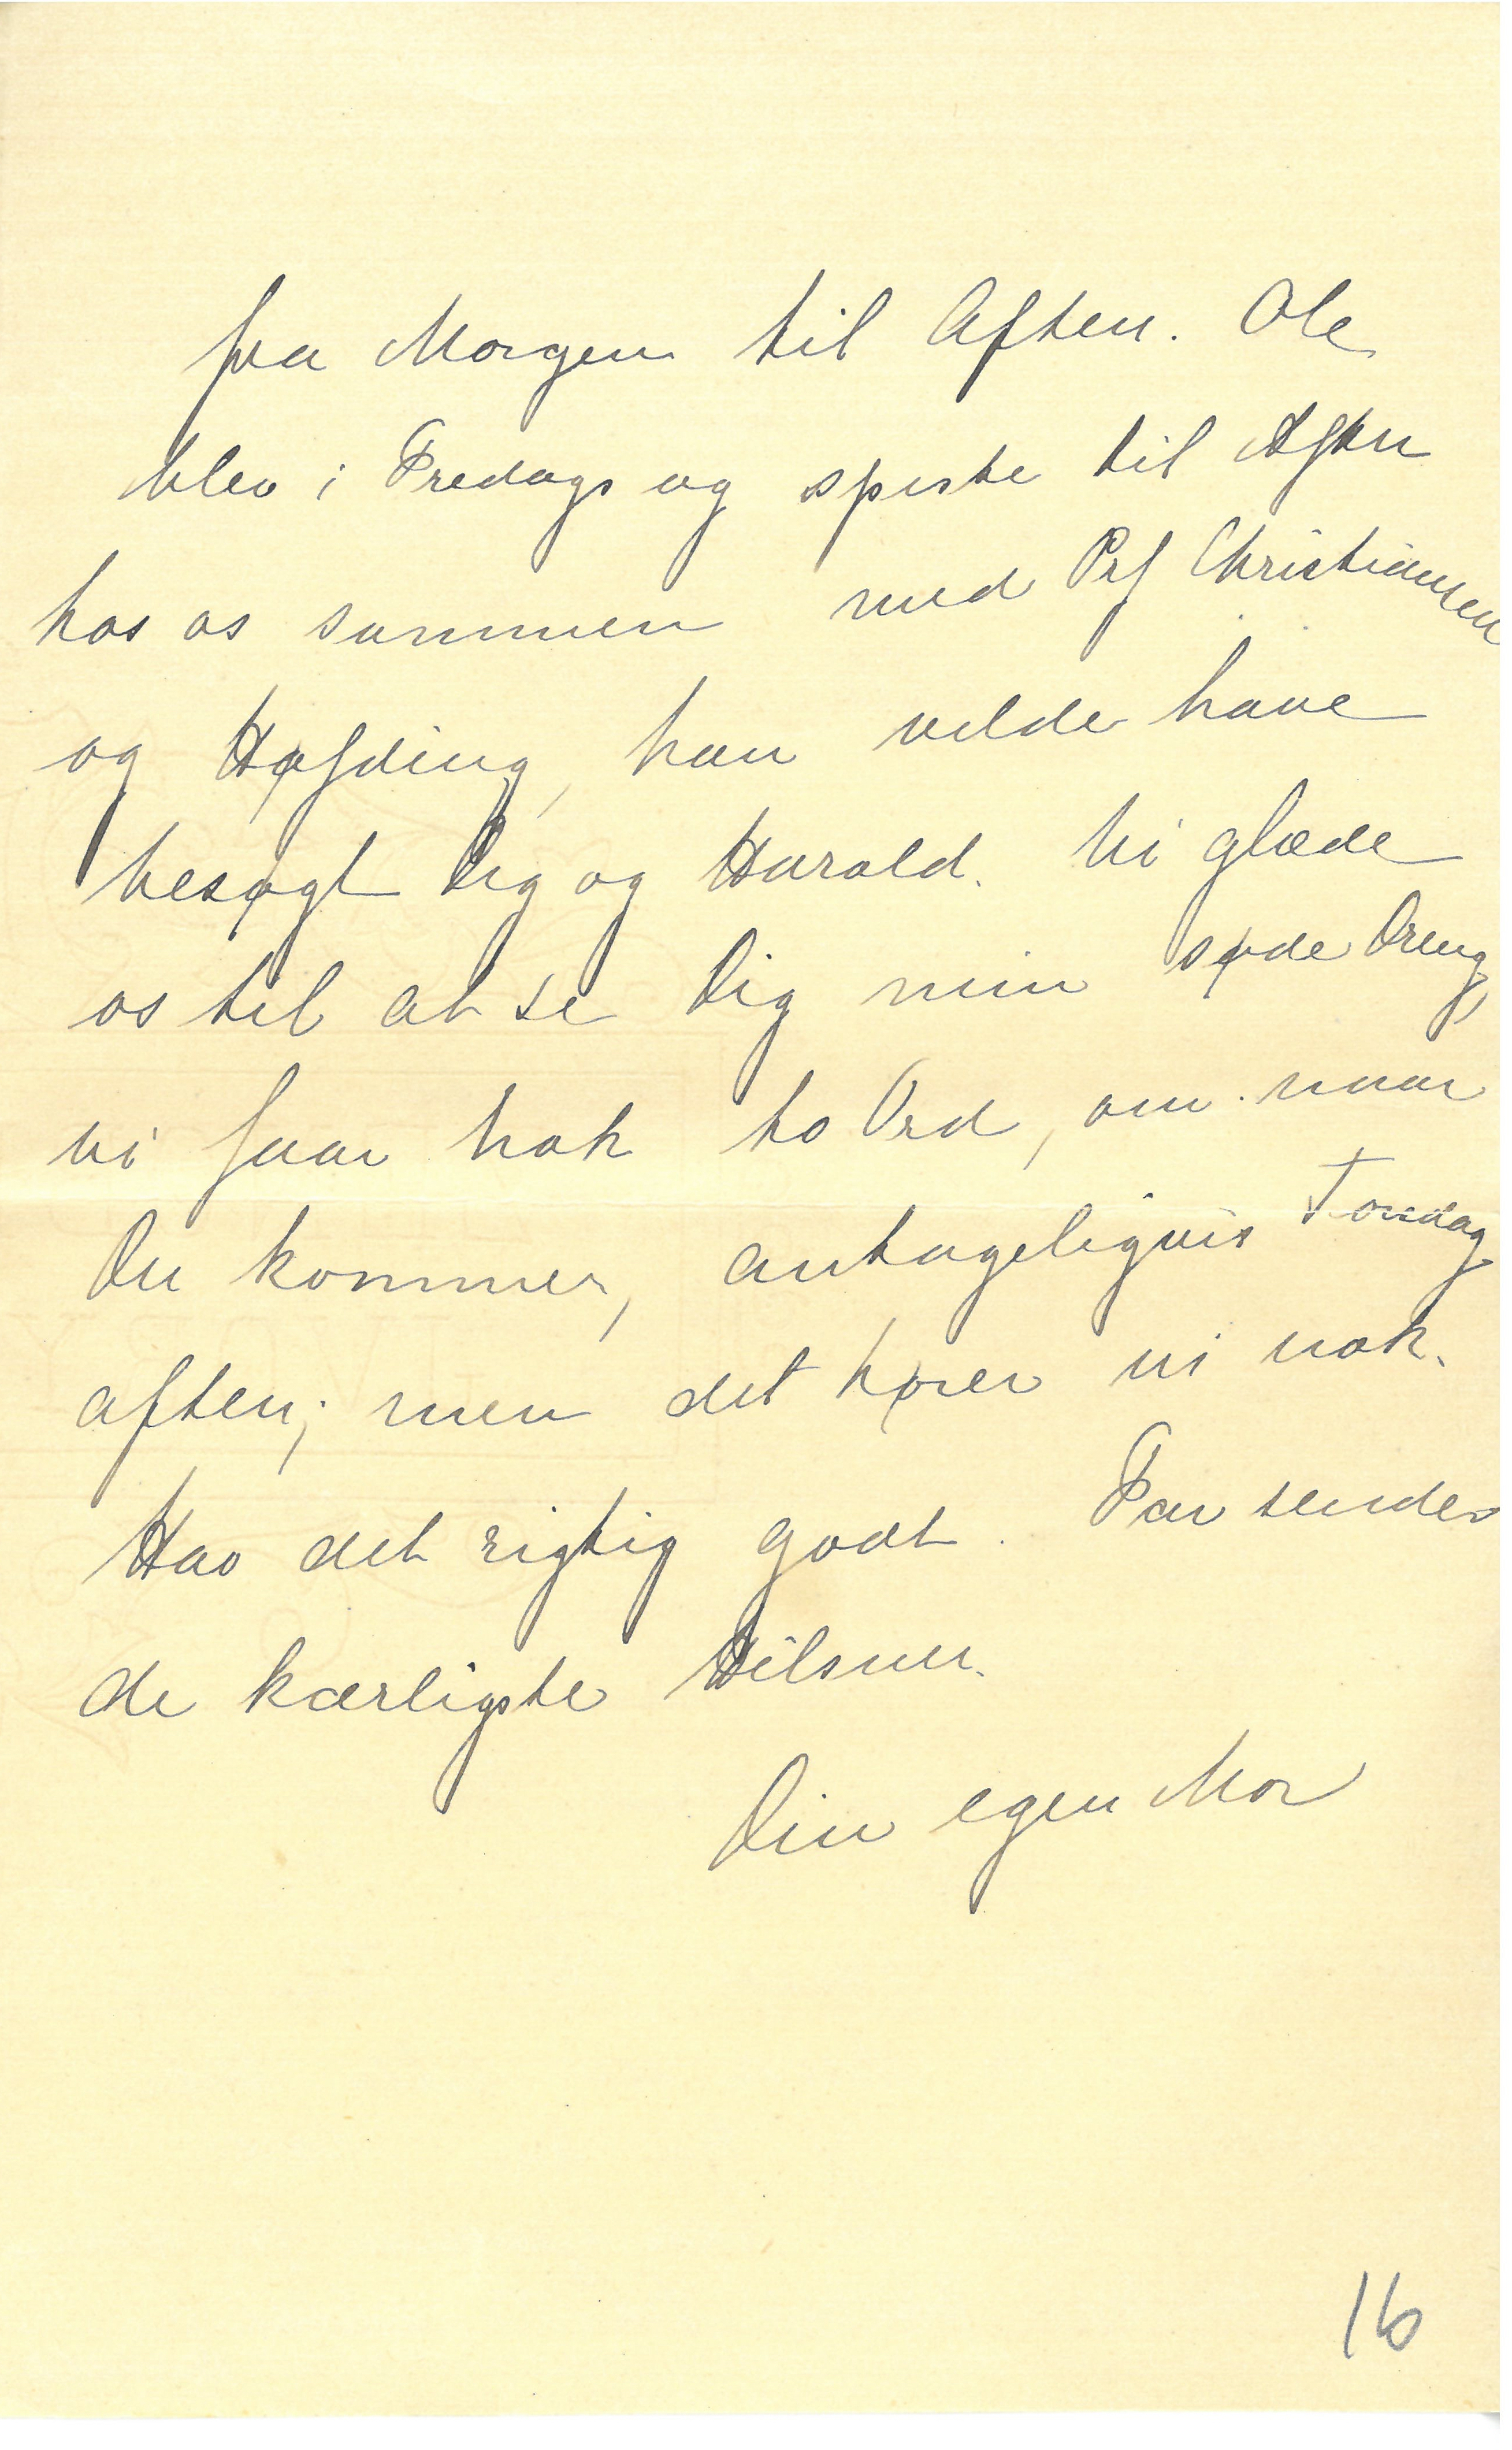 fra Morgen til Aften. Ole
blev i Fredags og spiste til Aften
hos os sammen med Prf Christiansen
og Høfding, han vilde have
besøgt Dig og Harald. Vi glæde
os til at se Dig min søde Dreng,
vi faar nok to Ord, om naar
Du kommer, antageligvis Torsdag
aften; men det hører vi nok.
Hav det rigtig godt. Far sender
de kærligste Hilsner.
Din egen Mor
16